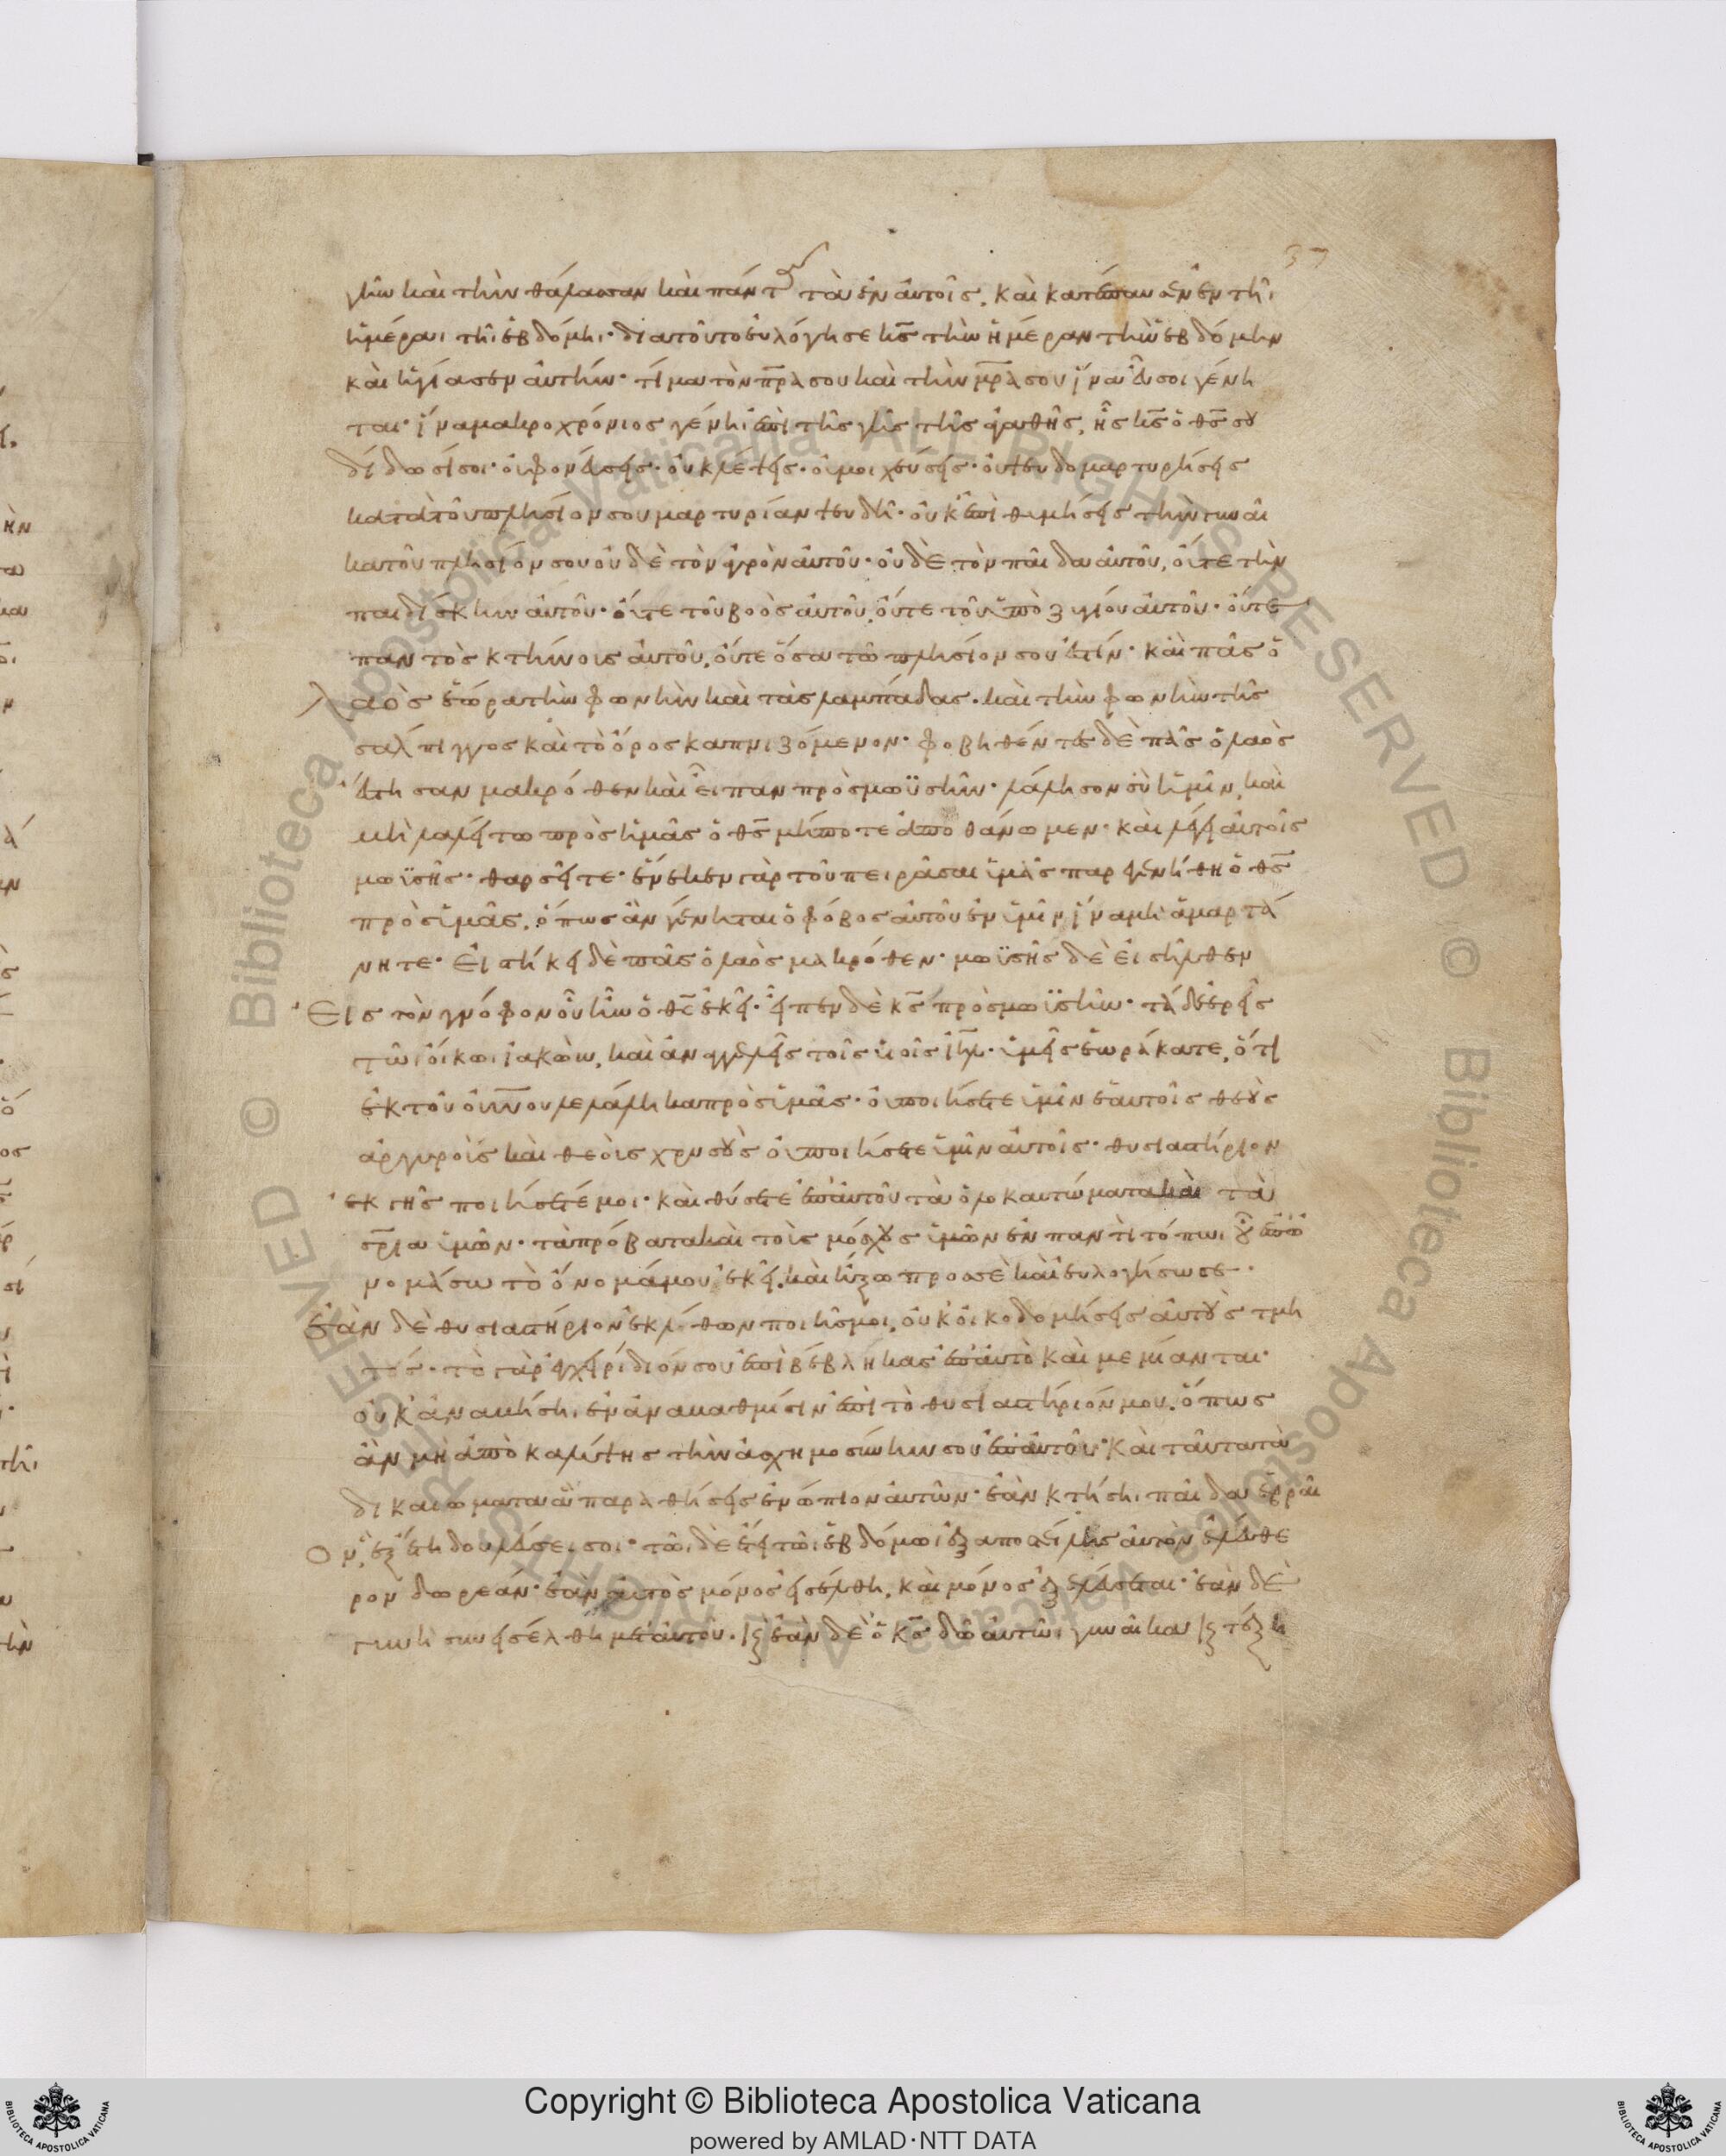 37
γῆν καὶ τὴν θάλασσαν καὶ πάντα τὰ ἐν αὐτοῖς. καὶ κατέπαυσεν ἐν τῆι
ἡμέραι τῆι ἑβδόμηι· διατοῦτο εὐλόγησε κ̅ς̅ τὴν ἡμέραν τὴν ἑβδόμην
καὶ ἡγίασεν αὐτήν· τίμα τὸν π̅ρ̅α σου καὶ τὴν μ̅ρ̅α σου ἵνα εὖ σοι γένη
ται· ἵνα μακροχρόνιος γένηι ἐπὶ τῆς γῆς τῆς ἀγαθῆς, ἧς κ̅ς̅ ὁ θ̅ς̅ σου
δίδωσί σοι· οὐ φονεύσεις· οὐ κλέψεις· οὐ μοιχεύσεις· οὐ ψευδομαρτυρήσεις
κατὰ τοῦ πλησίον σου μαρτυρίαν ψευδῆ· οὐκ ἐπιθυμήσεις τὴν γυναῖ
κα τοῦ πλησίον σου οὐδὲ τὸν ἀγρὸν αὐτοῦ· οὐδὲ τὸν παῖδα αὐτοῦ, οὔτε τὴν
παιδίσκην αὐτοῦ· οὔτε τοῦ βοὸς αὐτοῦ, οὔτε τοῦ ὑποζυγίου αὐτοῦ· οὔτε
παντὸς κτήνους αὐτοῦ, οὔτε ὅσα τῶ πλησίον σου ἐστίν· καὶ πᾶς ὁ
λαὸς ἑώρα τὴν φωνὴν καὶ τὰς λαμπάδας· καὶ τὴν φωνὴν τῆς
σάλπιγγος καὶ τὸ ὄρος καπνιζόμενον· φοβηθέντες δὲ πᾶς ὁ λαὸς
ἔστησαν μακρόθεν καὶ εἶπαν πρὸς μωϋσῆν· λάλησον σὺ ἡμῖν, καὶ
μὴ λαλείτω πρὸς ἡμᾶς ὁ θ̅ς̅ μήποτε ἀποθάνωμεν· καὶ λέγει αὐτοῖς
μωϋσῆς· θαρσεῖτε· ἕνεκεν γὰρ τοῦ πειράσαι ὑμᾶς παρεγενήθη ὁ θ̅ς̅
πρὸς ὑμᾶς, ὅπως ἂν γένηται ὁ φόβος αὐτοῦ ἐν ὑμῖν ἵνα μὴ ἁμαρτά
νητε· Εἱστήκει δὲ πᾶς ὁ λαὸς μακρόθεν· μωϋσῆς δὲ εἰσῆλθεν
Εἰς τὸν γνόφον οὗ ἦν ὁ θ̅ς̅ ἐκεῖ· εἶπεν δὲ κ̅ς̅ πρὸς μωϋσῆν· τάδε ἐρεῖς
τῶι οἴκωι ἰακὼβ, καὶ ἀναγγελεῖς τοῖς υἱοῖς ἰ̅η̅λ̅· ὑμεῖς ἑωράκατε, ὅτι
ἐκ τοῦ οὐ̅ν̅ου λελάληκα πρὸς ὑμᾶς· οὐ ποιήσετε ὑμῖν ἑαυτοῖς θεοὺς
ἀργυροῦς καὶ θεοὺς χρυσοῦς οὐ ποιήσετε ὑμῖν αὐτοῖς· θυσιαστήριον
ἐκ γῆς ποιήσετέ μοι· καὶ θύσετε ἐπ' αὐτοῦ τὰ ὁλοκαυτώματα καὶ τὰ
σ̅ρ̅ια ὑμῶν· τὰ πρόβατα καὶ τοὺς μόσχους ὑμῶν ἐν παντὶ τόπωι οὗ ἐὰν ἐπο
νομάσω τὸ ὄνομά μου ἐκεῖ, καὶ ἥξω προσσὲ καὶ εὐλογήσω σε·
Ἐὰν δὲ θυσιαστήριον ἐκ λίθων ποιῆς μοι, οὐκ οἰκοδομήσεις αὐτοὺς τμη
τούς· τὸ γὰρ ἐγχειρίδιόν σου ἐπιβέβληκας ἐπ' αὐτὸ καὶ μεμίανται·
οὐκ ἀναβήσηι ἐν ἀναβαθμίσιν ἐπὶ τὸ θυσιαστήριόν μου, ὅπως
ἂν μὴ ἀποκαλύψης τὴν ἀσχημοσύνην σου ἐπ' αὐτοῦ· Καὶ ταῦτα τὰ
δικαιώματα ἃ παραθήσεις ἐνώπιον αὐτῶν· ἐὰν κτήσηι παῖδα ἑβραῖ
ον, ἓξ ἔτη δουλεύσει σοι· τῶι δὲ ἔτει τῶι ἑβδόμωι ἐξαποστελεῖς αὐτὸν ἐλεύθε
ρον δωρεάν· ἐὰν αὐτὸς μόνος εἰσέλθη, καὶ μόνος ἐξελεύσεται· ἐὰν δὲ
γυνὴ συνεισέλθη μετ' αὐτοῦ· ἐὰν δὲ ὁ κ̅ς̅ δῶ αὐτῶι γυναῖκα
Copyright © Biblioteca Apostolica Vaticana
powered by AMLAD·NTT DATA